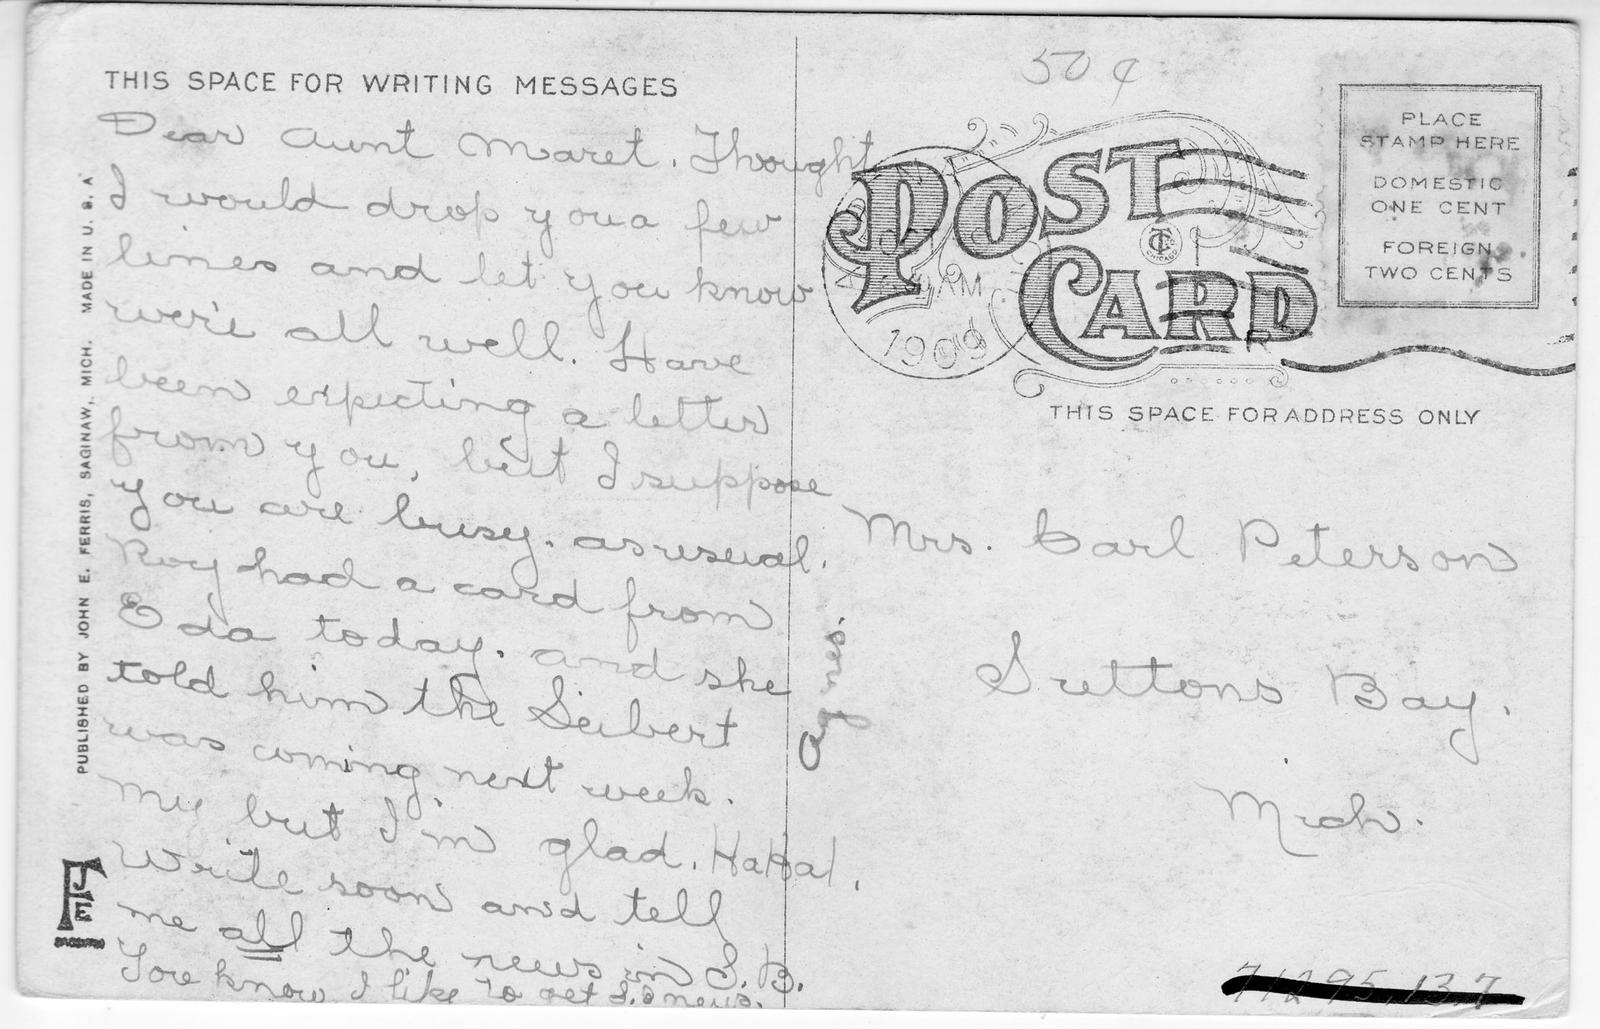 THIS SPACE FOR WRITING MESSAGES
Dear Aunt Maret. Thought
I would drop you a few
lines and let you know
we're all well. Have
been expecting a letter
from you, but I suppose
you are busy. as usual.
Roy had a card from
Eda today. and she
told him the Seibert
was coming next week.
My but I'm glad. HaHa!.
Write soon and tell
me all the news in S.B.
You know I like to get S.B news.
Agnes.
PUBLISHED BY JOHN E. FERRIS, SAGINAW, MICH. MADE IN U. S. A
JEF
50 ¢
POST CARD
CHICAGO
AM
1909
R
PLACE
STAMP HERE
DOMESTIC
ONE CENT
FOREIGN
TWO CENTS
THIS SPACE FOR ADDRESS ONLY
Mrs. Carl Peterson
Suttons Bay.
Mich.